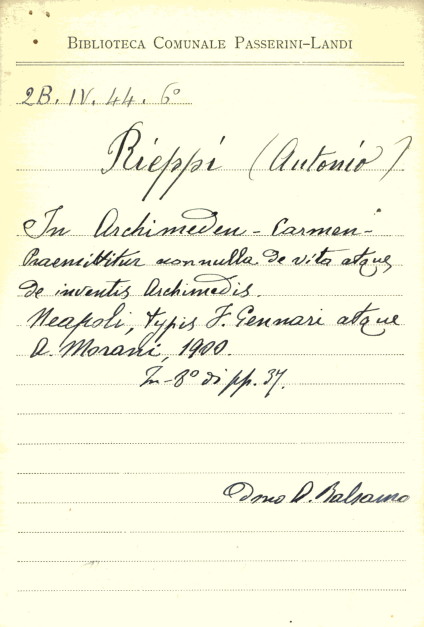 BIBLIOTECA COMUNALE PASSERINI-LANDI
2B. IV. 44. 6º
Rieppi (Antonio)
In Archimeden - Carmen -
Praemittitur nonnulla de vita atque
de inventis Archimedis.
Neapoli, typis F. Gennari atque
A. Morani, 1900.
In-8º di pp. 37.
Dono A. Balsamo